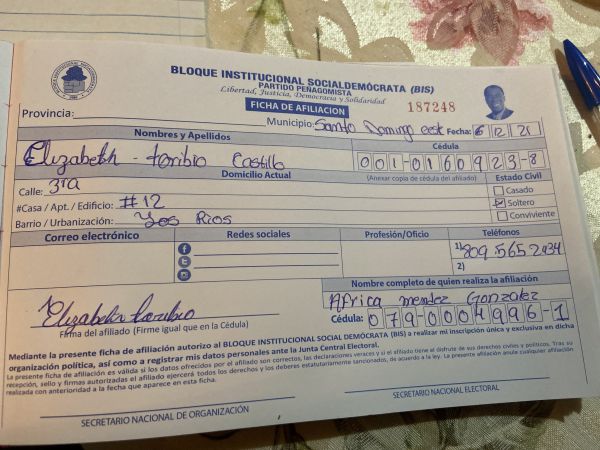 BLOQUE INSTITUCIONAL SOCIALDEMÓCRATA (BIS)
PARTIDO PEÑAGOMISTA
Libertad, Justicia, Democracia y Solidaridad
FICHA DE AFILIACION
187248
Provincia:
Municipio: Santo Domingo este Fecha: 6 12 21
Nombres y Apellidos
Cédula
Elizabeth - toribio Castillo
001-0160923-8
Domicilio Actual
(Anexar copia de cédula del afiliado)
Estado Civil
Calle: 3ra
Casado
#Casa / Apt. / Edificio: #12
Soltero
Barrio / Urbanización: Los Rios
Conviviente
Correo electrónico
Redes sociales
Profesión/Oficio
Teléfonos
1) 809 565 2434
2)
Nombre completo de quien realiza la afiliación
Africa mendez Gonzalez
Elizabeth toribio
Cédula: 079-0004996-1
Firma del afiliado (Firme igual que en la Cédula)
Mediante la presente ficha de afiliación autorizo al BLOQUE INSTITUCIONAL SOCIAL DEMÓCRATA (BIS) a realizar mi inscripción única y exclusiva en dicha
organización política, así como a registrar mis datos personales ante la Junta Central Electoral.
La presente ficha de afiliación es valida si los datos ofrecidos por el afiliado son correctos, las declaraciones veraces y si el afiliado tiene el disfrute de sus derechos civiles y políticos. Tras su
recepción, sello y firmas autorizadas el afiliado ejercerá todos los derechos y los deberes estatutariamente sancionados, de acuerdo a la ley. La presente afiliación anula cualquier afiliación
realizada con anterioridad a la fecha que aparece en esta ficha.
SECRETARIO NACIONAL DE ORGANIZACIÓN
SECRETARIO NACIONAL ELECTORAL